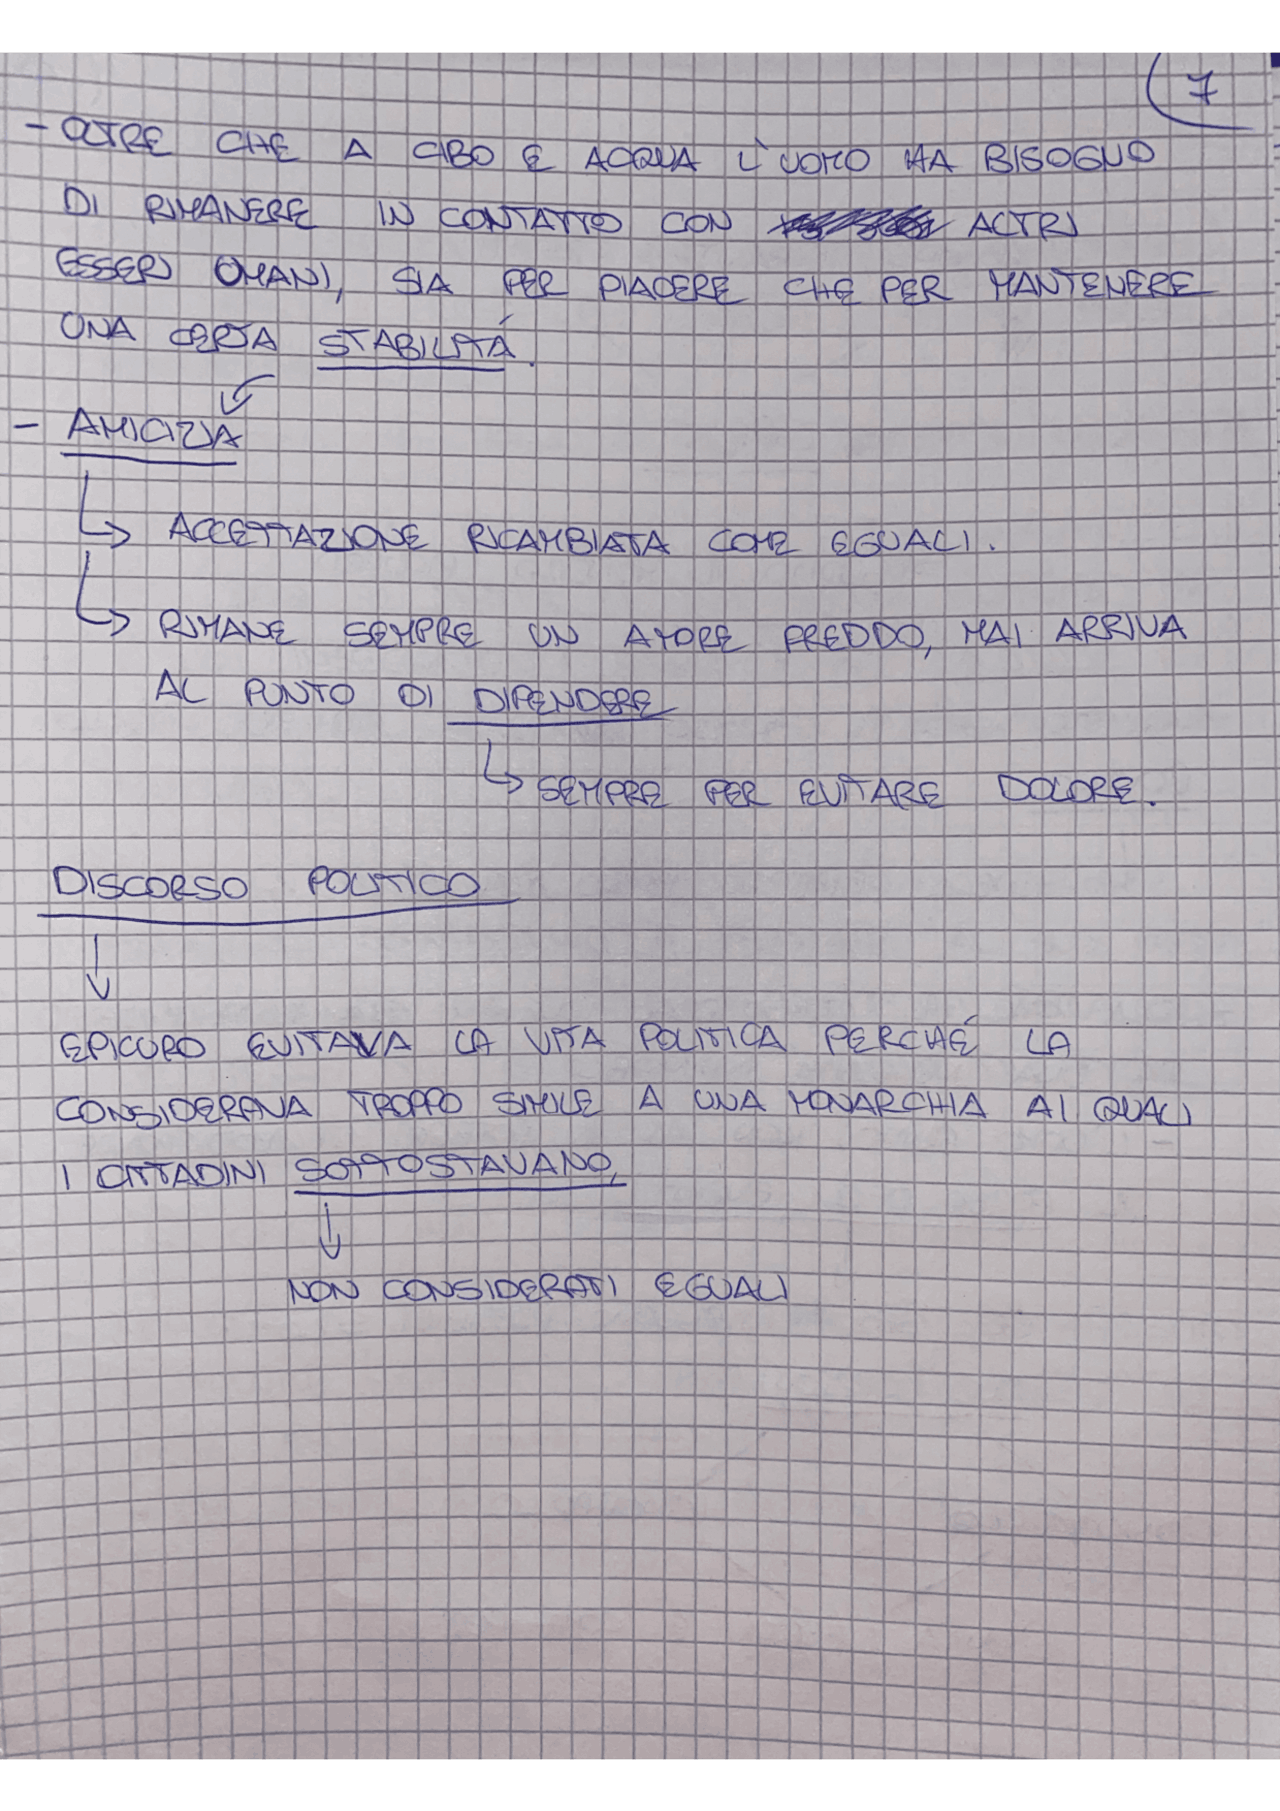 7
- OLTRE CHE A CIBO E ACQUA L'UOMO HA BISOGNO
DI RIMANERE IN CONTATTO CON ALTRI
ESSERI UMANI, SIA PER PIACERE CHE PER MANTENERE
UNA CERTA STABILITÁ.
- AMICIZIA
ACCETTAZIONE RICAMBIATA COME EGUALI.
RIMANE SEMPRE UN AMORE FREDDO, MAI ARRIVA
AL PUNTO DI DIPENDERE
SEMPRE PER EVITARE DOLORE.
DISCORSO POLITICO
EPICURO EVITAVA LA VITA POLITICA PERCHÉ LA
CONSIDERAVA TROPPO SIMILE A UNA MONARCHIA AI QUALI
I CITTADINI SOTTOSTAVANO,
NON CONSIDERATI EGUALI